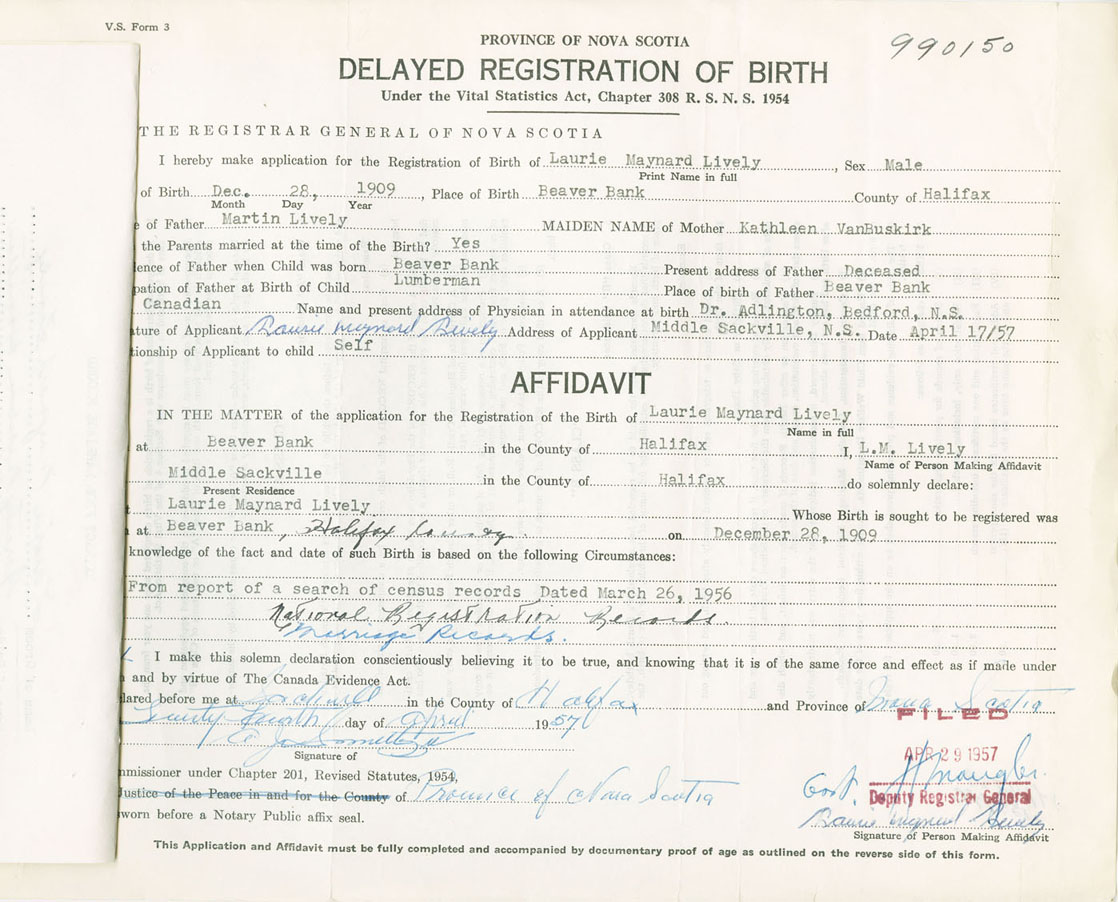 V.S. Form 3
PROVINCE OF NOVA SCOTIA
990150
DELAYED REGISTRATION OF BIRTH
Under the Vital Statistics Act, Chapter 308 R. S. N. S. 1954
THE REGISTRAR GENERAL OF NOVA SCOTIA
I hereby make application for the Registration of Birth of Laurie Maynard Lively, Sex Male
Print Name in full
of Birth Dec. 28, 1909, Place of Birth Beaver Bank County of Halifax
Month Day Year
of Father Martin Lively MAIDEN NAME of Mother Kathleen VanBuskirk
the Parents married at the time of the Birth? Yes
ence of Father when Child was born Beaver Bank Present address of Father Deceased
pation of Father at Birth of Child Lumberman Place of birth of Father Beaver Bank
Canadian Name and present address of Physician in attendance at birth Dr. Adlington, Bedford, N.S.
ture of Applicant Laurie Maynard Lively Address of Applicant Middle Sackville, N.S. Date April 17/57
tionship of Applicant to child Self
AFFIDAVIT
IN THE MATTER of the application for the Registration of the Birth of Laurie Maynard Lively
Name in full
at Beaver Bank in the County of Halifax I, L.M. Lively
Name of Person Making Affidavit
Middle Sackville in the County of Halifax do solemnly declare:
Present Residence
Laurie Maynard Lively Whose Birth is sought to be registered was
at Beaver Bank, Halifax County. on December 28, 1909
knowledge of the fact and date of such Birth is based on the following Circumstances:
From report of a search of census records Dated March 26, 1956
National Registration Records.
Marriage Records.
I make this solemn declaration conscientiously believing it to be true, and knowing that it is of the same force and effect as if made under
and by virtue of The Canada Evidence Act.
lared before me at in the County of Halifax and Province of Nova Scotia
day of April 1957
FILED
APR 29 1957
Signature of
mmissioner under Chapter 201, Revised Statutes, 1954,
Justice of the Peace in and for the County of Province of Nova Scotia
Deputy Registrar General
worn before a Notary Public affix seal.
Laurie Maynard Lively
Signature of Person Making Affidavit
This Application and Affidavit must be fully completed and accompanied by documentary proof of age as outlined on the reverse side of this form.